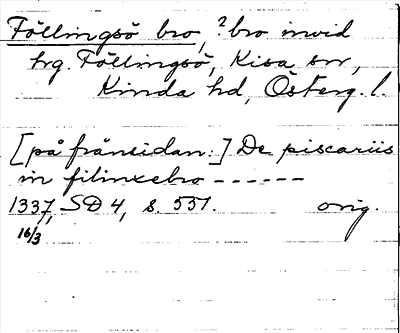 Föllingsö bro, ?bro invid
hrg. Föllingsö, Kisa sn,
Kinda hd, Österg. l.
[på frånsidan:] De piscariis
in filinxebro ------
1337, SD 4, s. 551. orig.
16/3